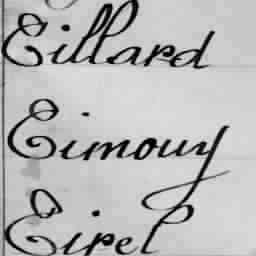 Eillard
Eimouy
Eipel